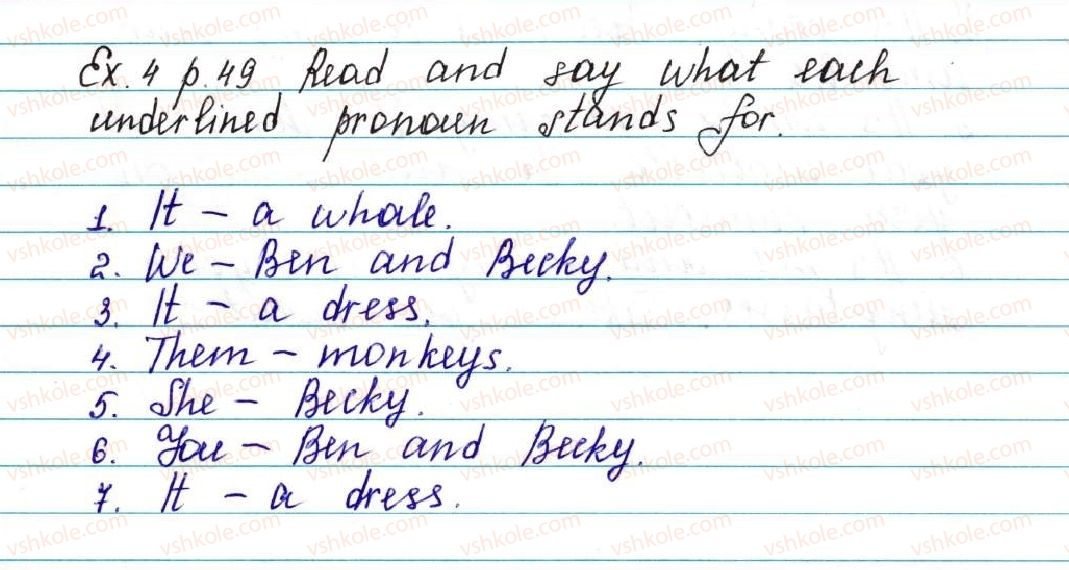 Ex. 4 p. 49 Read and say what each
underlined pronoun stands for.
1. It – a whale.
2. We – Ben and Becky.
3. It – a dress.
4. Them – monkeys.
5. She – Becky.
6. You – Ben and Becky.
7. It – a dress.